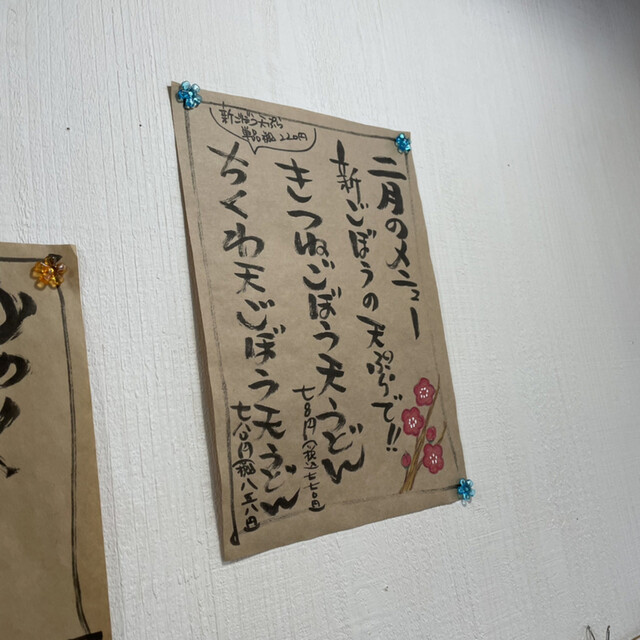 二月のメニュー
新ごぼうの天ぷらで!!
きつねごぼう天うどん
七〇〇円(税込七七〇円)
ちくわ天ごぼう天うどん
七八〇円
新ごぼう天ぷら
単品